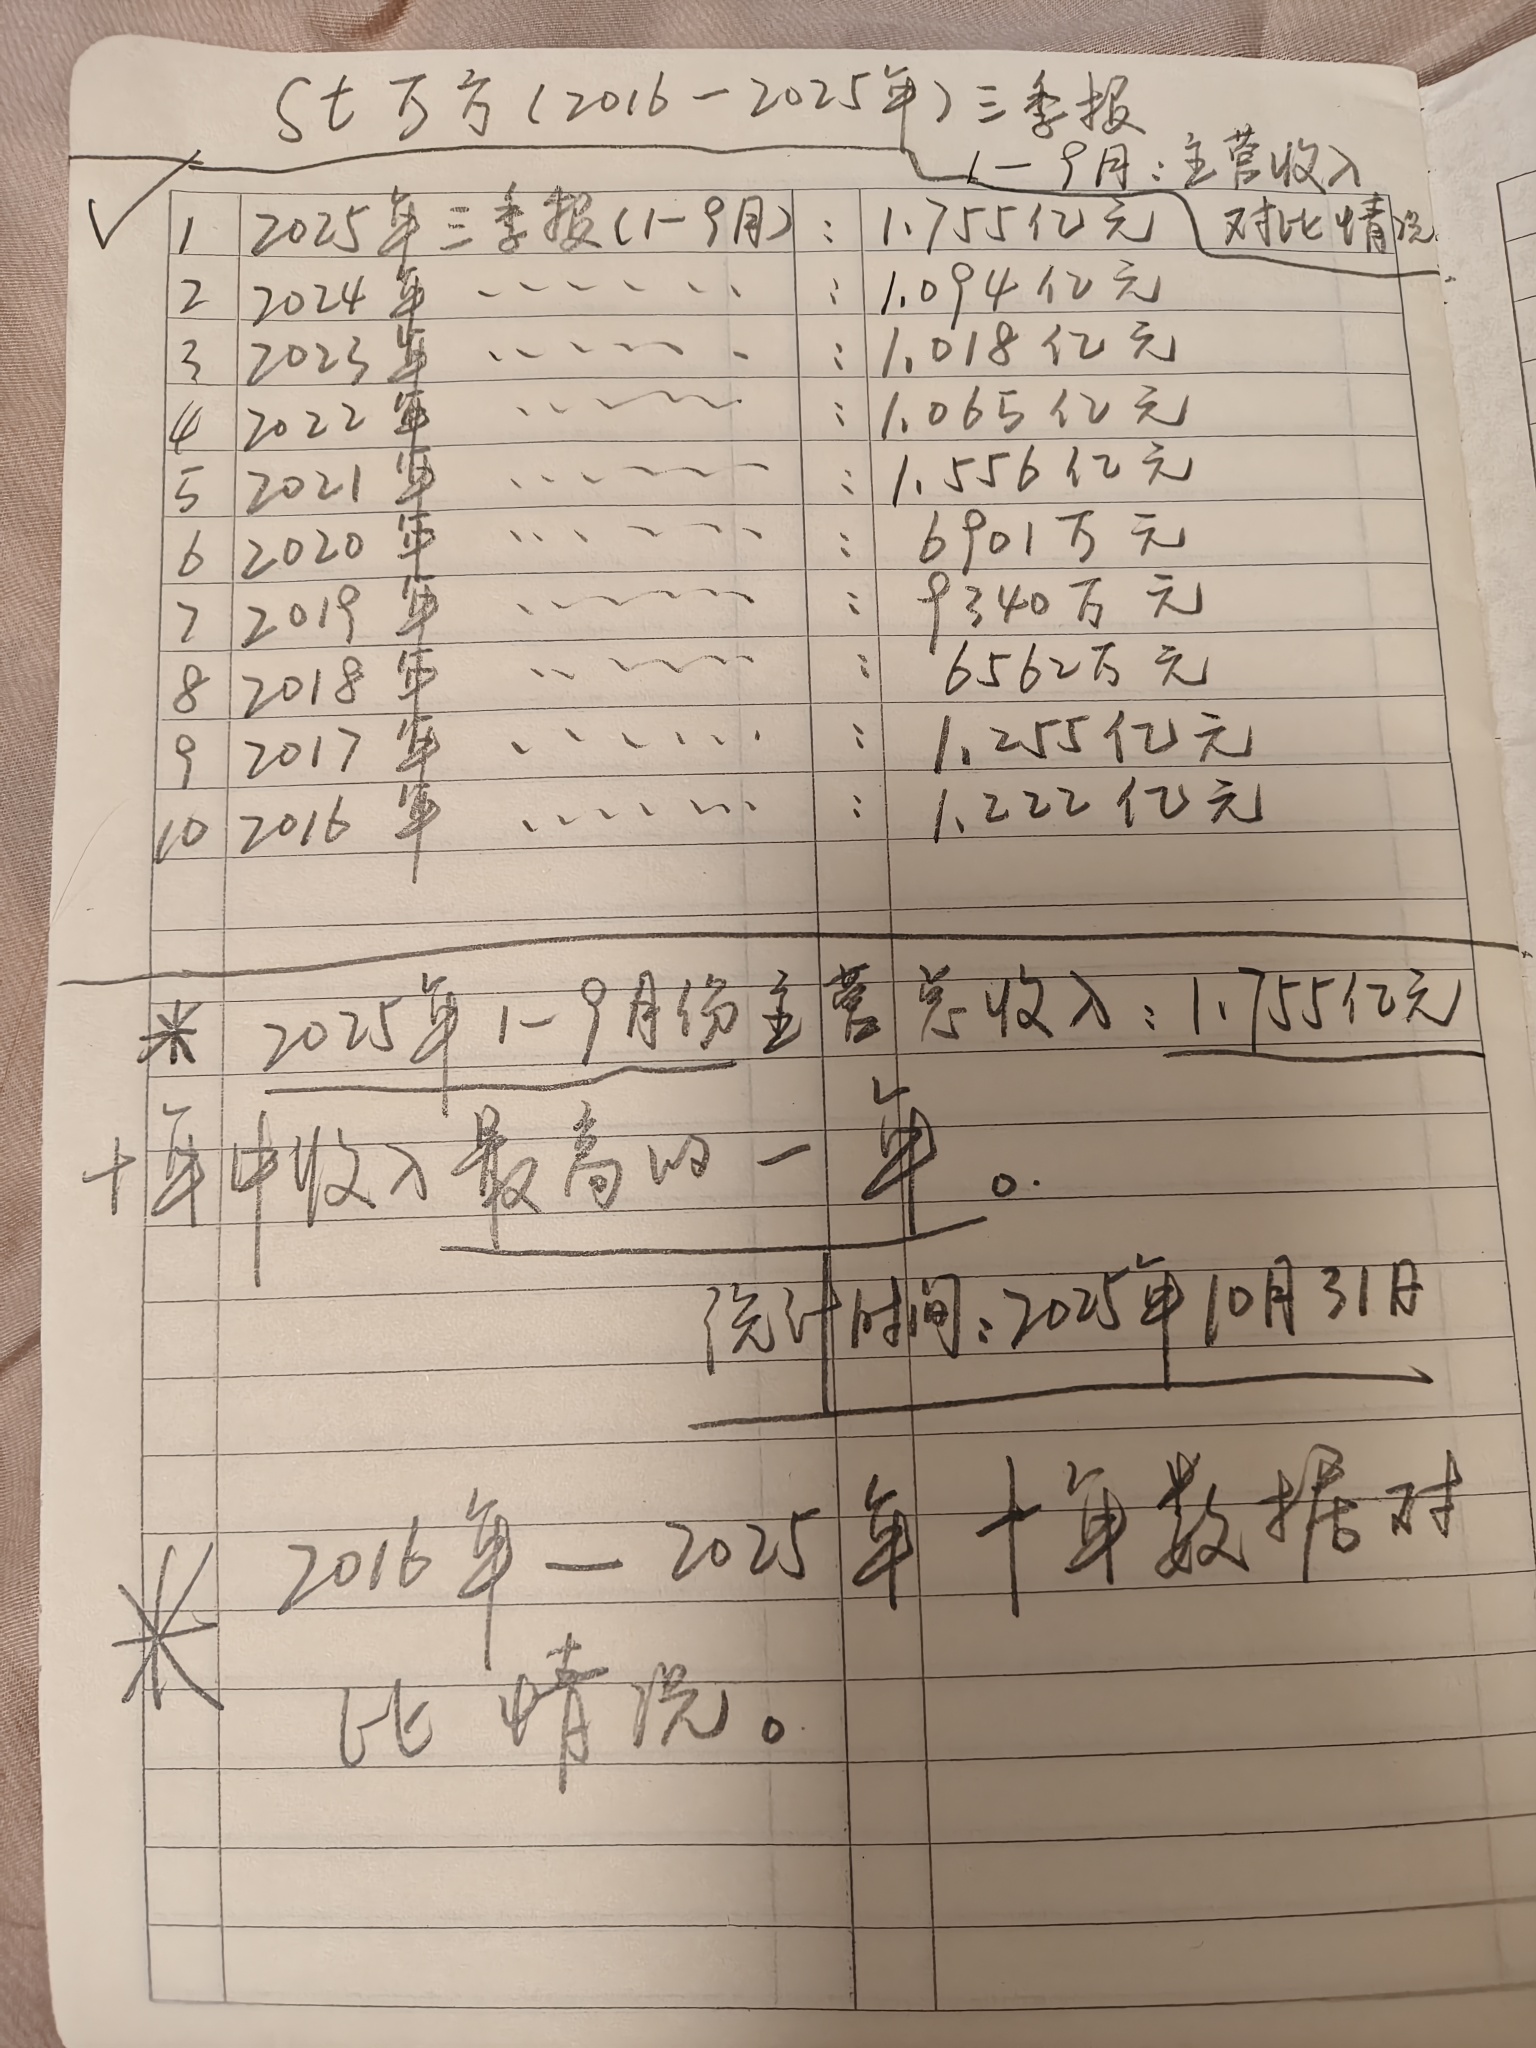 St万方(2016-2025年)三季报
1-9月:主营收入
对比情况
1 2025年三季报(1-9月) : 1.755亿元
2 2024年 、、、、、、 : 1.094亿元
3 2023年 、、、、、、 : 1.018亿元
4 2022年 、、、、、、 : 1.065亿元
5 2021年 、、、、、、 : 1.556亿元
6 2020年 、、、、、、 : 6901万元
7 2019年 、、、、、、 : 9340万元
8 2018年 、、、、、、 : 6562万元
9 2017年 、、、、、、 : 1.255亿元
10 2016年 、、、、、、 : 1.222亿元
* 2025年1-9月份主营总收入:1.755亿元
十年中收入最高的一年。
统计时间:2025年10月31日
* 2016年—2025年十年数据对
比情况。